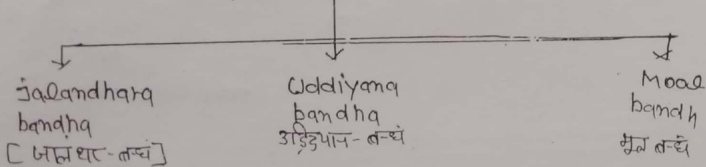 jalandhara
bandha
[जालंधर-बन्धं]
Uddiyana
bandha
उड्डियान-बन्धं
Mool
bandh
मूल बन्धं